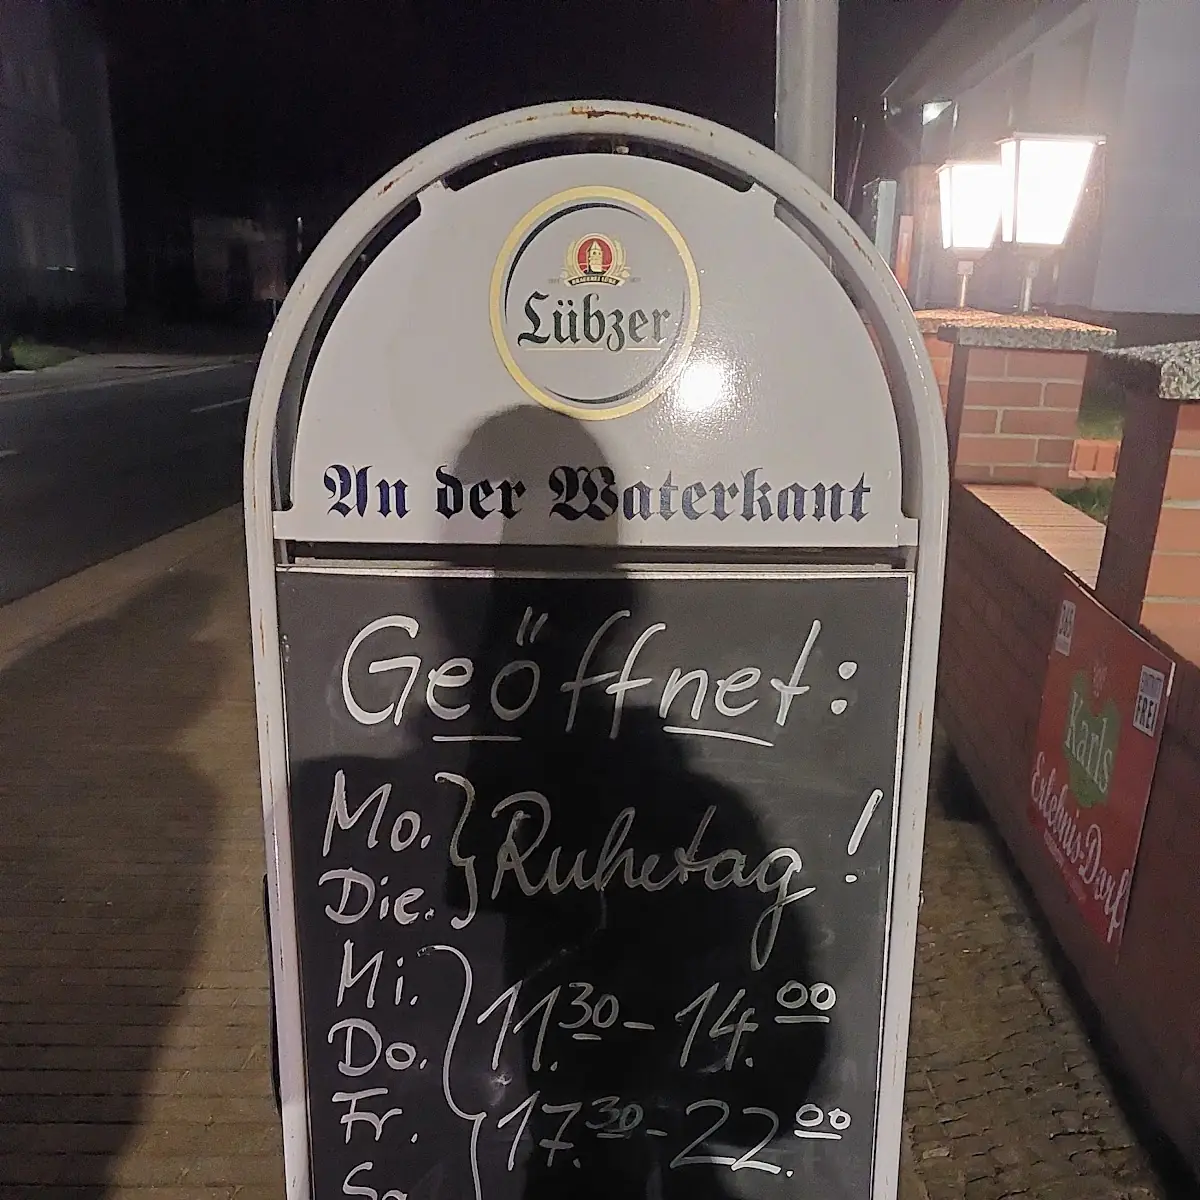 BRAUEREI LÜBZ
Lübzer
An der Waterkant
Geöffnet:
Mo. } Ruhetag !
Die.
Mi. } 11.30 - 14.00
Do.
Fr. } 17.30 - 22.00
Sa
Karls
Erlebnis-Dorf
EINTRITT
FREI